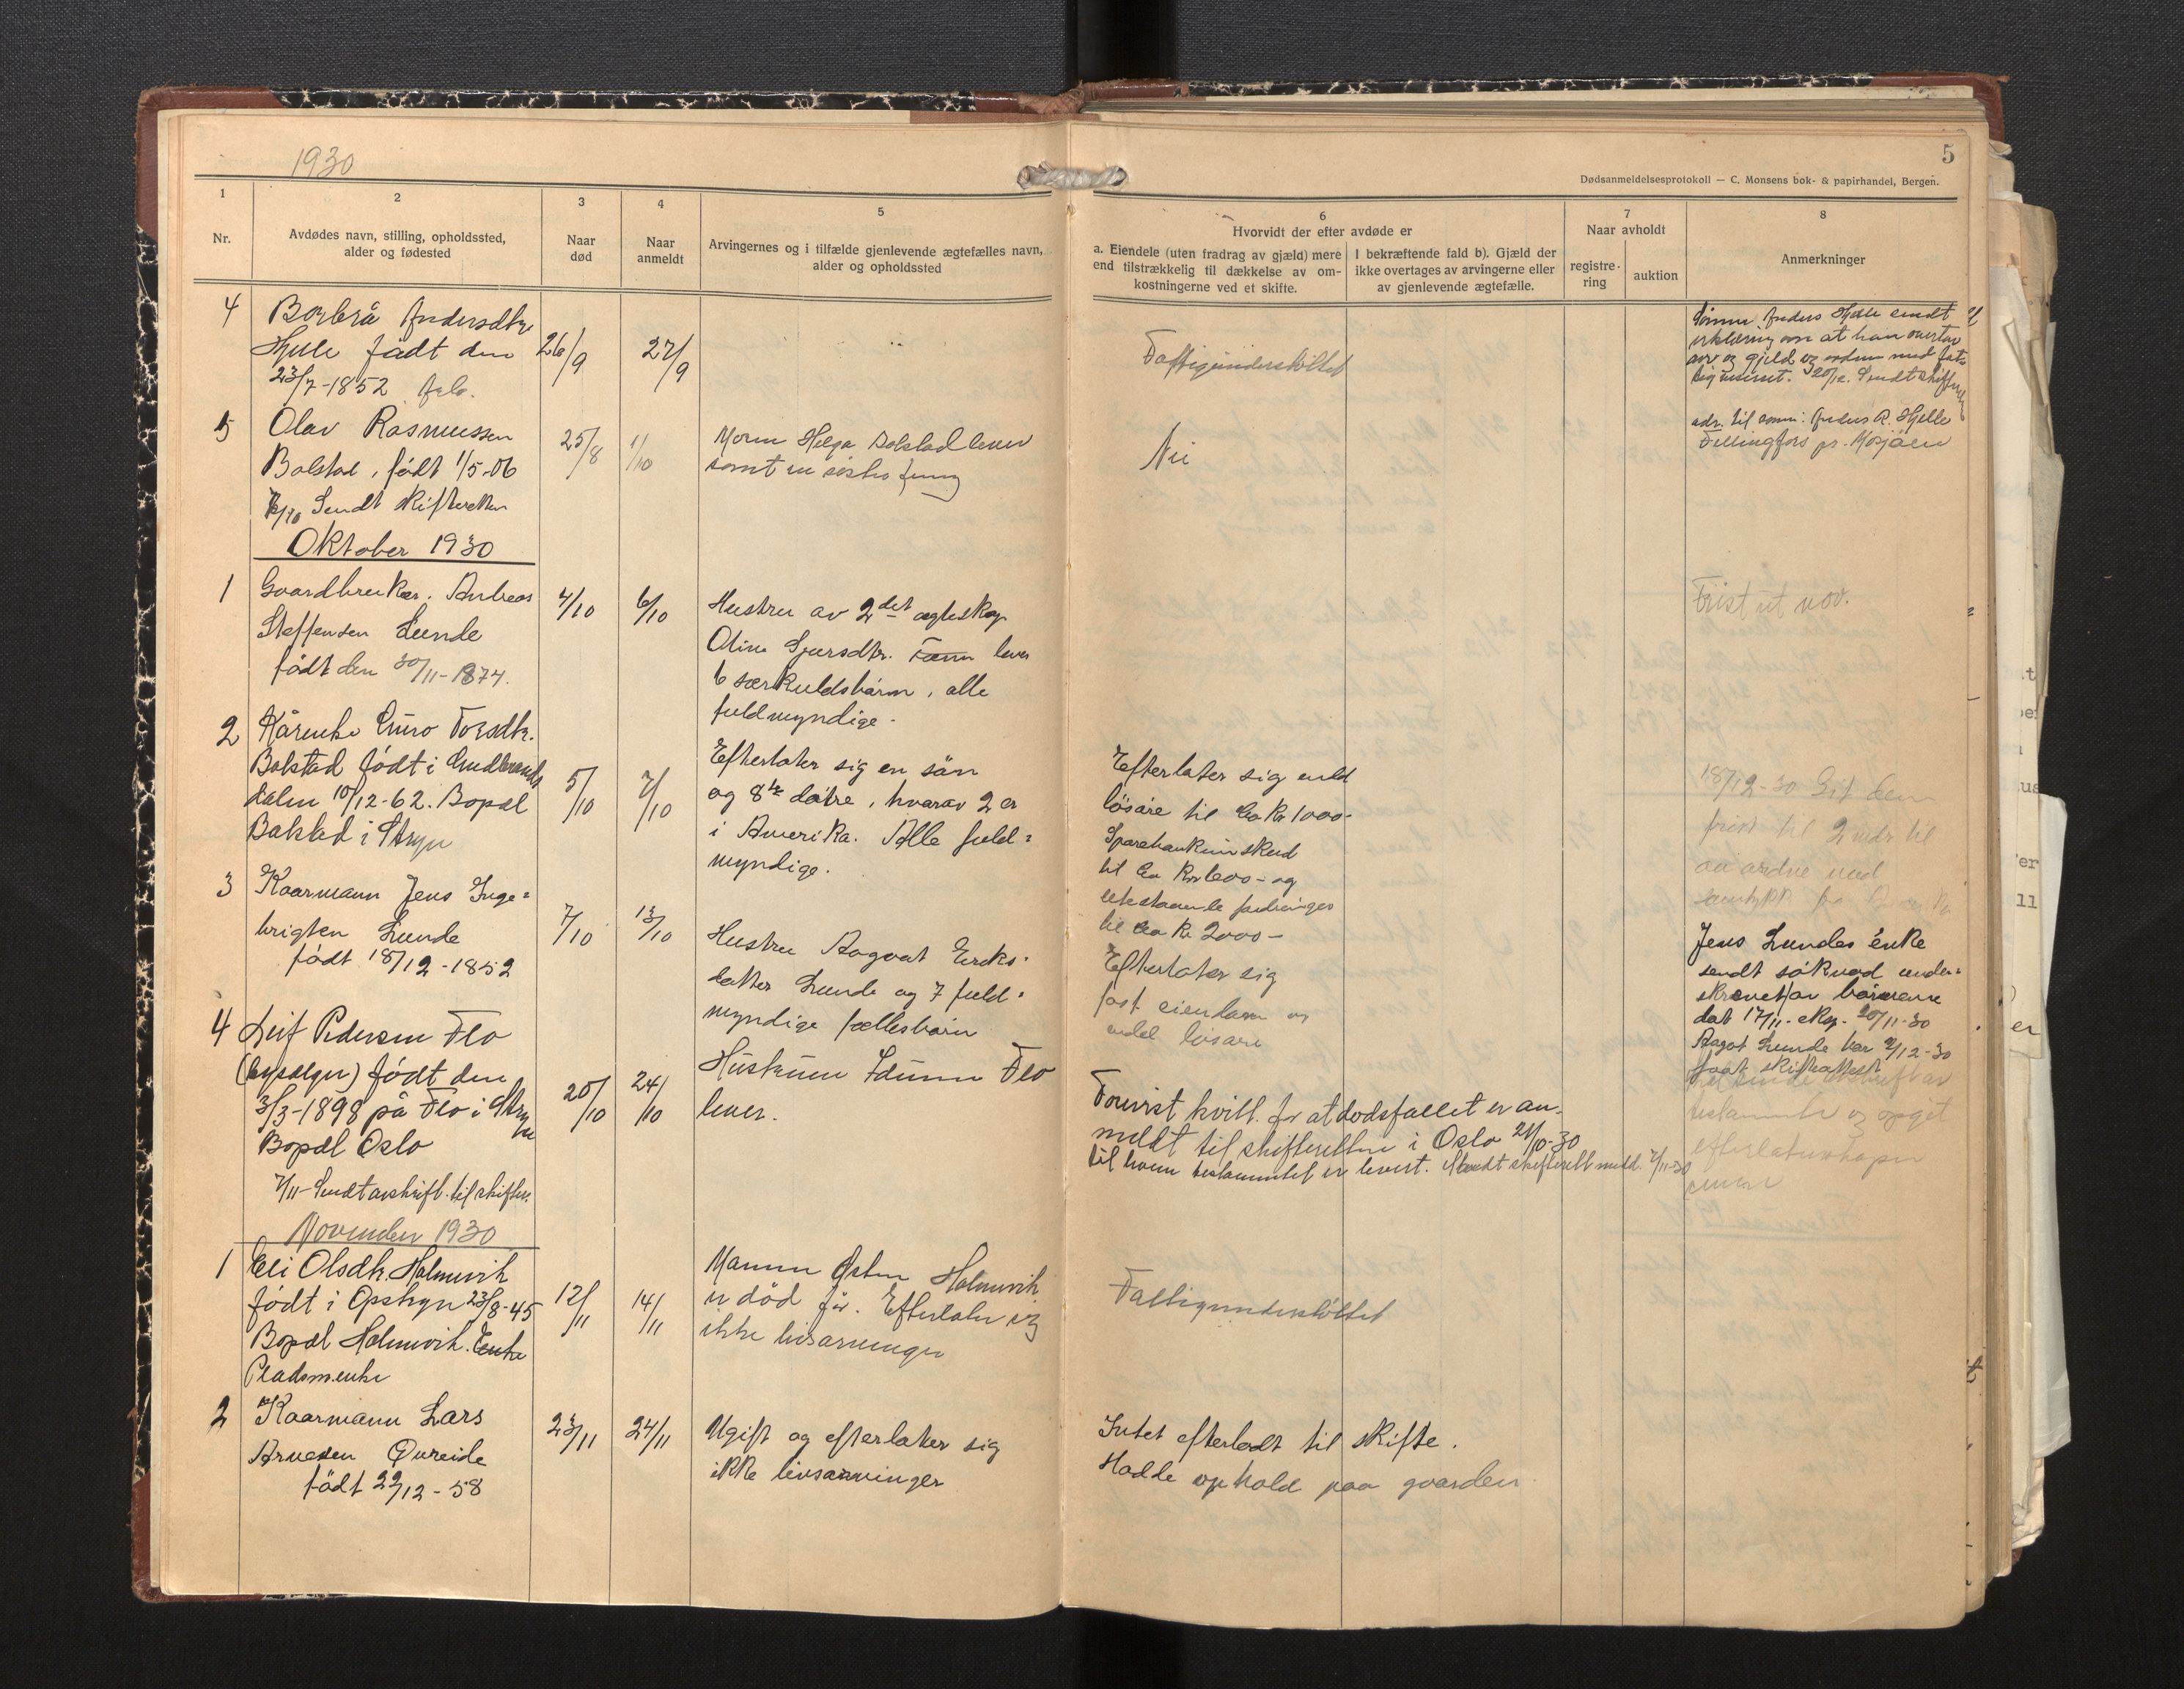 1930
5
Dødsanmeldelsesprotokoll — C. Monsens bok- & papirhandel, Bergen.
1
Nr.
2
Avdødes navn, stilling, opholdssted,
alder og fødested
3
Naar
død
4
Naar
anmeldt
5
Arvingernes og i tilfælde gjenlevende ægtefælles navn,
alder og opholdssted
6
Hvorvidt der efter avdøde er
a. Eiendele (uten fradrag av gjæld) mere
end tilstrækkelig til dækkelse av om-
kostningerne ved et skifte.
I bekræftende fald b). Gjæld der
ikke overtages av arvingerne eller
av gjenlevende ægtefælle.
7
Naar avholdt
registre-
ring
auktion
8
Anmerkninger
4
Borbrå Andersdtr.
Hjelle født den
23/7-1852
26/9
27/9
Fattigunderstøttet
Anders Hjelle sendt
erklæring om at han overtar
arv og gjeld og ordne med fat-
20/12. Sendt skifter
5
Olav Rasmussen
Bolstad, født 1/5-06
Sendt skifteretten
25/8
1/10
Moren Helga Bolstad lever
samt en søster
Nei
adr. til sønn: Anders R. Hjelle
pr. Mosjøen
Oktober 1930
1
Gaardbruker. Andreas
Steffensen Lunde
født den 30/11-1874.
4/10
6/10
Hustru av 2det egteskap
Oline Sjursdtr. lever
6 særkuldsbarn, alle
fuldmyndige.
Frist ut nov.
2
Kårenke Guro Torsdtr.
Bolstad født i Gudbrands
dalen 10/12-62. Bopæl
Bolstad i Stryn
5/10
7/10
Efterlater sig en søn
og 8te døtre, hvorav 2 er
i Amerika. Alle fuld=
myndige.
Efterlater sig endel
løsøre til Ca Kr 1000-
Sparebankinnskud
til Ca Kr. - og
utestaaende fordringer
til Ca Kr 2000-
18/12-30 Git dem
frist til 2 mdr til
aa ordne med
3
Kaarmann Jens Inge=
brigtsen Lunde
født 18/12-1852
7/10
13/10
Hustru Aagoat Eriks=
datter Lunde og 7 fuld=
myndige fællesbarn
Efterlater sig
fast eiendom og
endel løsøre
Jens Lundes enke
sendt søknad under=
skrevet av barnene
dat 17/11. eksp. 20/11-30
Aagot Lunde har 2/12-30
faat skifteattest
4
Leif Pedersen Flo
født den
3/3-1898 på Flo i Stryn
Bopæl Oslo
7/11-Sendt avskrift til skifter.
20/10
24/10
Hustruen Idunn Flo
lever.
Forevist kvitt. for at dødsfallet er an-
meldt til skifteretten i Oslo 21/10-30
til hvem testamentet er levert. Sendt skifterett meld. 7/11-30
avskrift av
testamente og opgit
November 1930
1
Eli Olsdtr. Holmevik
født i Opstryn 23/8-45
Bopæl Holmevik. Enke
Pladsmenke
12/11
14/11
Mannen Østen Holmevik
er død før. Efterlater sig
ikke livsarvinger
Fattigunderstøttet
2
Kaarmann Lars
Arnesen Øvreide
født 22/12-58
23/11
24/11
Ugift og efterlater sig
ikke livsarvinger
Intet efterlodt til skifte.
Hadde ophold paa gaarden